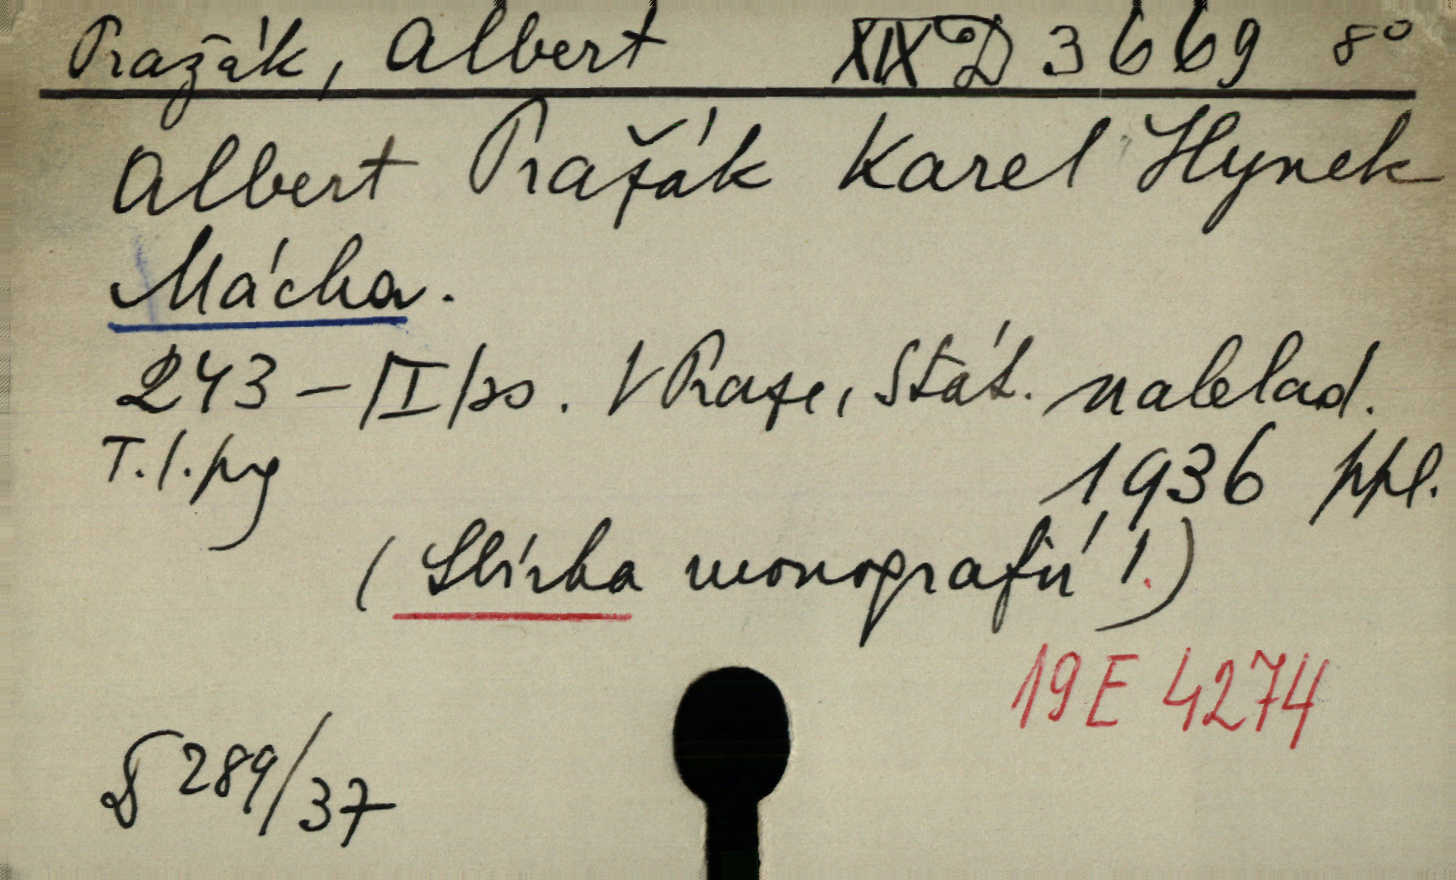 Pražák, Albert XIX D 3669 8°
Albert Pražák Karel Hynek
Mácha.
243 – /I/ss. V Praze, Stát. naklad.
T.l.pg 1936 ppl.
(Sbírka monografií 1.)
19 E 4274
289/37